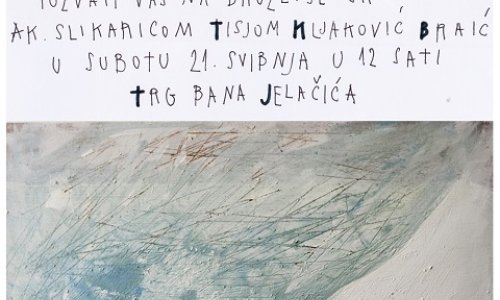 POZVATI VAS NA DRUŽENJE
AK. SLIKARICOM TISJOM KLJAKOVIĆ BRAIĆ
U SUBOTU 21. SVIBNJA U 12 SATI
TRG BANA JELAČIĆA